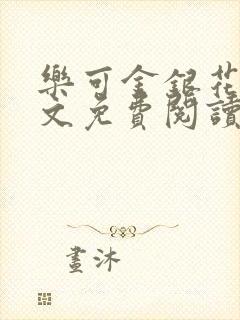 樂可金銀花
文免費閱讀
畫沐